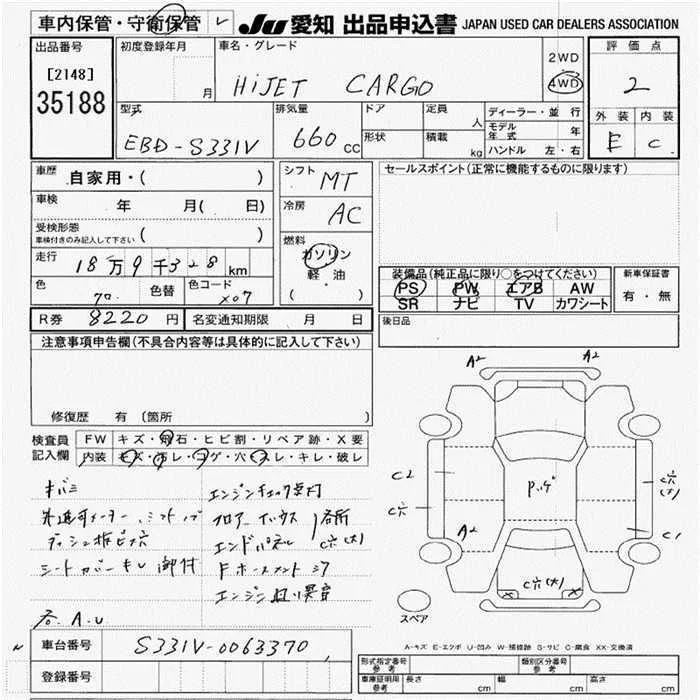 車内保管・守衛保管 レ JU 愛知 出品申込書 JAPAN USED CAR DEALERS ASSOCIATION
出品番号 初度登録年月 車名・グレード 2WD 評価点
[2148] 月 HiJET CARGO 4WD 2
35188 型式 排気量 ドア 定員 人 ディーラー・並行 外装 内装
EBD-S331V 660 CC 形状 積載 kg モデル年式 年 E C
ハンドル 左・右
車歴 自家用・( ) シフト MT セールスポイント(正常に機能するものに限ります)
車検 年 月( 日) 冷房 AC
受検形態 ( )
車検付きのみ記入して下さい
燃料 ガソリン
走行 18万9千328km 軽・油 装備品(純正品に限り○をつけてください) 新車保証書
色 70 色替 色コード X07 ( ) PS PW エアB AW 有・無
SR ナビ TV カワシート
R券 8220円 名変通知期限 月 日 後日品
注意事項申告欄(不具合内容等は具体的に記入して下さい)
A2 A2
修復歴 有 (箇所
検査員 FW キズ・飛石・ヒビ割・リペア跡・X要
記入欄 内装 キズ・汚レ・コゲ・穴・スレ・キレ・破レ
エンジンチェック点灯
フロアー インハウス 各所
エンドパネル C穴(大)
シートカバーキレ
エンジン
A.U
C2
C穴
A2
C穴
C1
C穴(大)
X X
スペア
A-キズ E-エクボ U-凹み W-補修跡 S-サビ C-腐食 XX-交換済
車台番号 S331V-0063370
登録番号
形式指定番号 参考 類別区分番号 参考
車庫証明用 参考 長さ cm 幅 cm 高さ cm